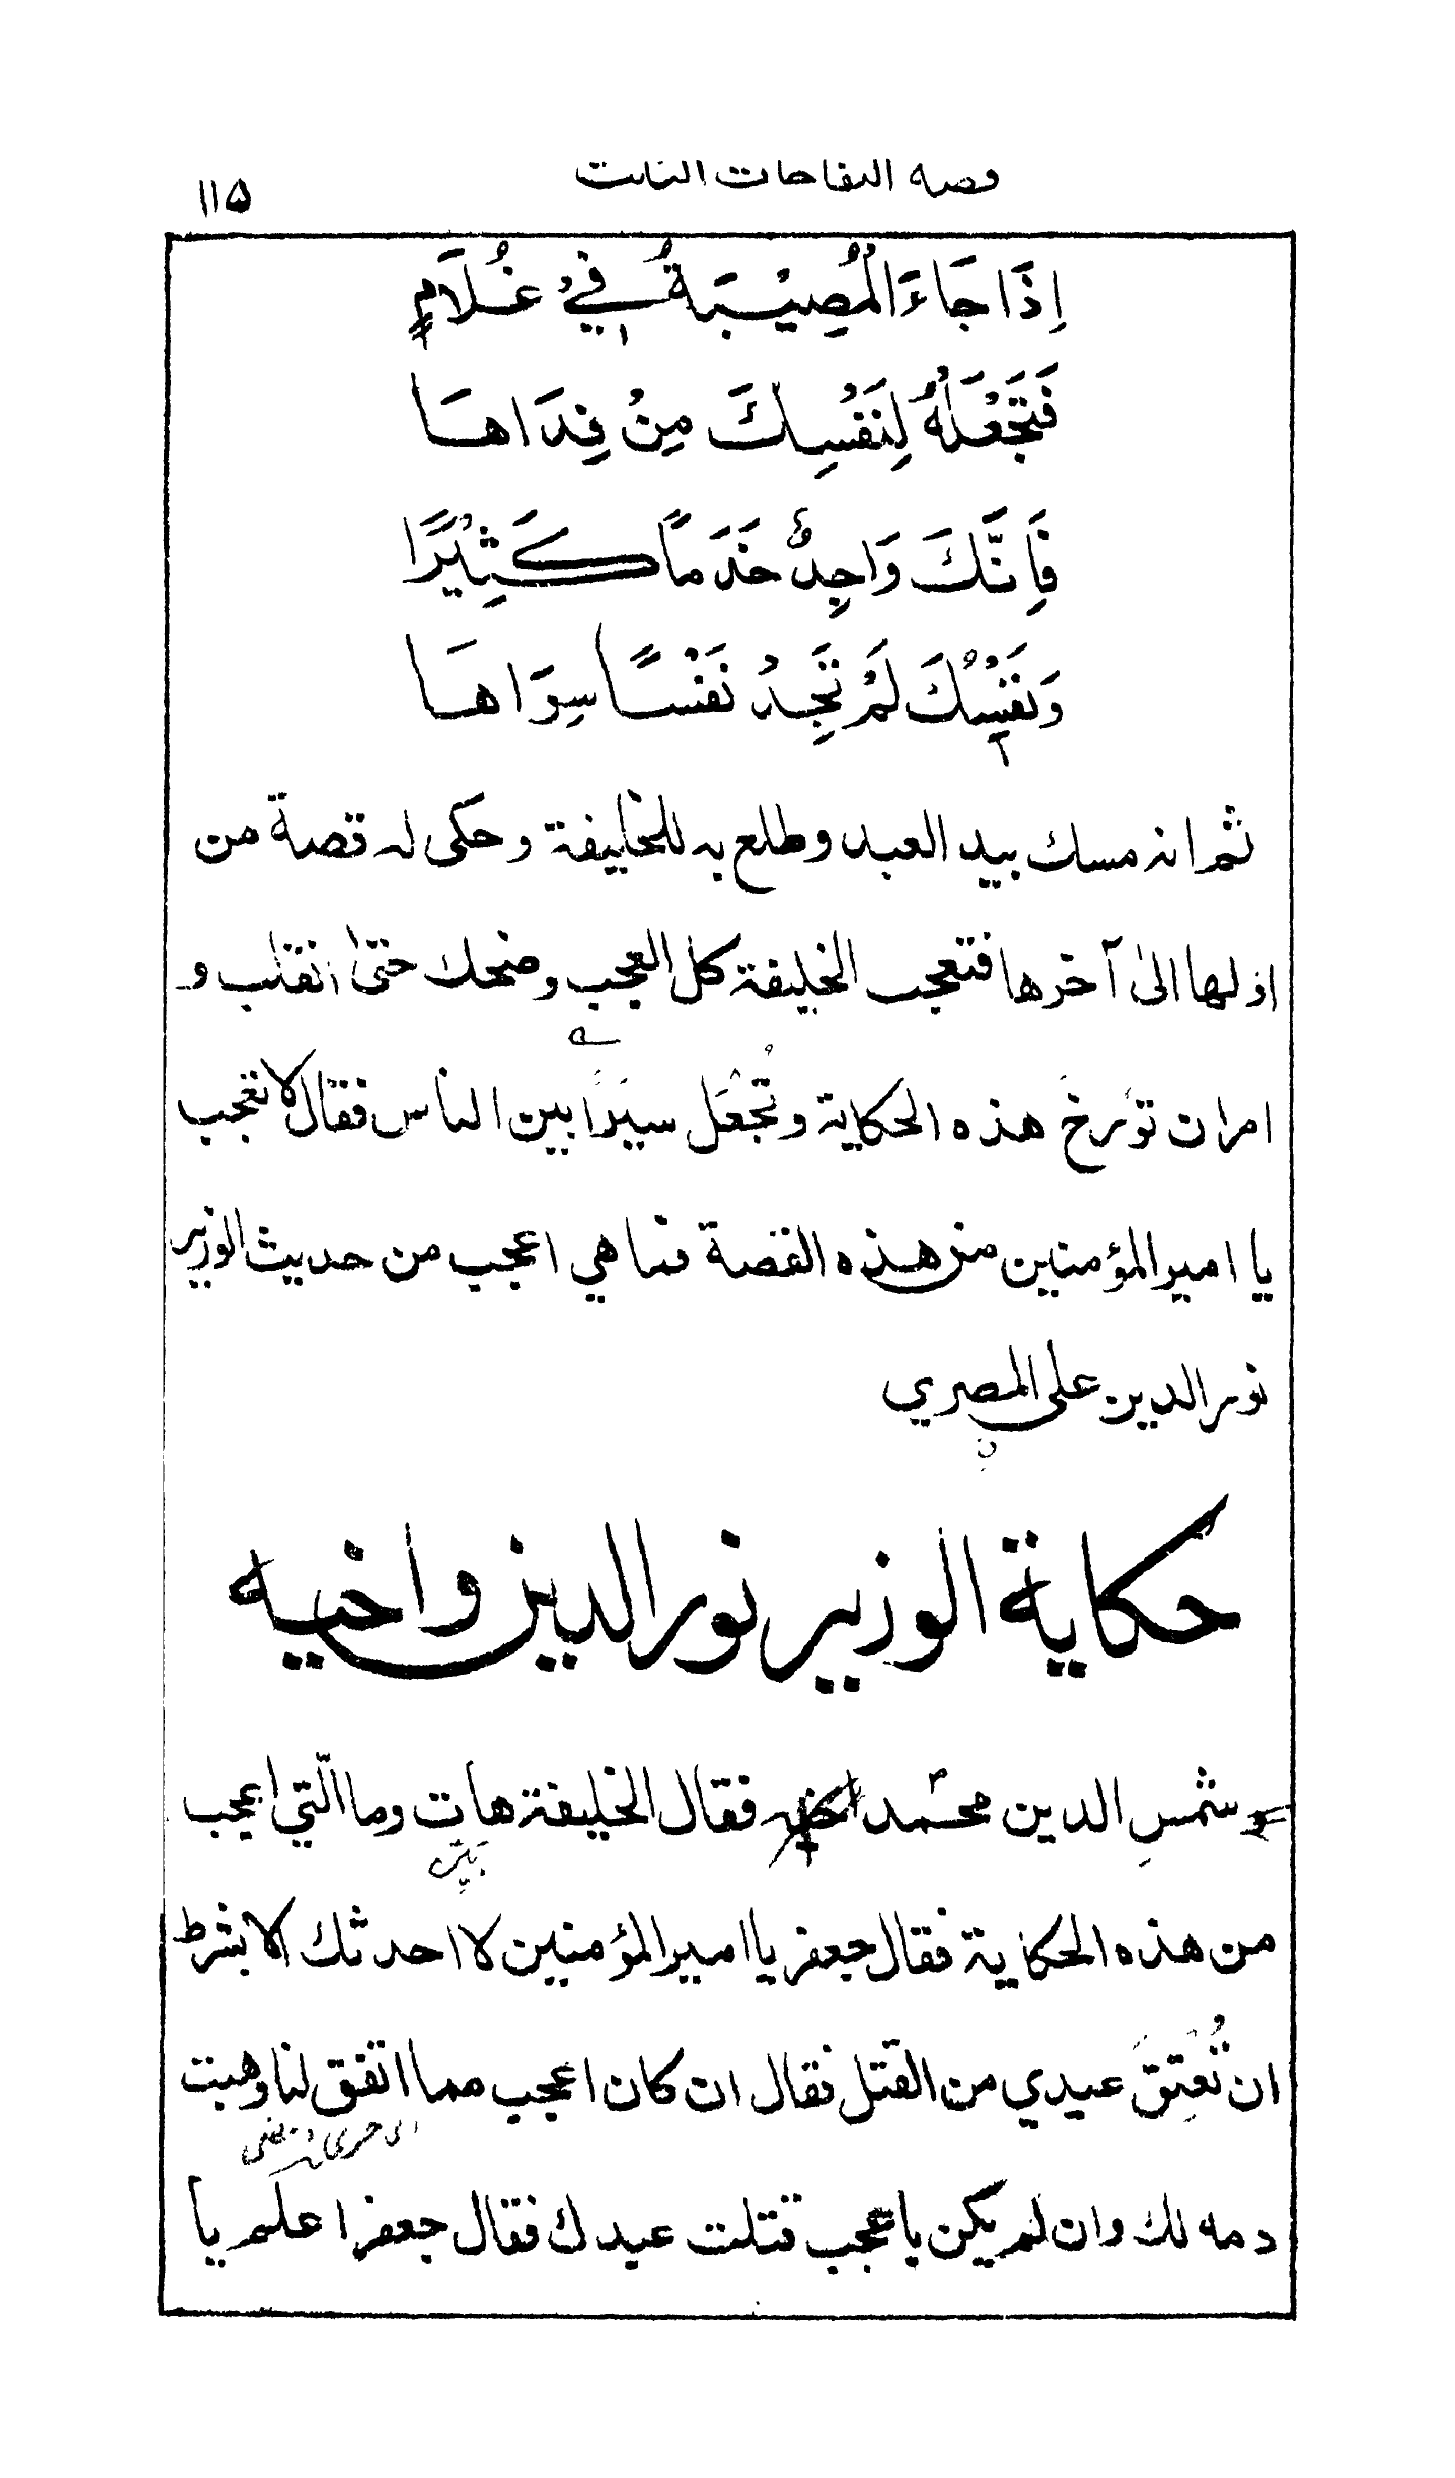 قصة التفاحات الثلث
١١٥
اِذَا جَاءَ الْمُصِيْبَةُ فِيْ غُلَامٍ
فَتَجْعَلُهُ لِنَفْسِكَ مِنْ فِدَاهَا
فَاِنَّكَ وَاجِدٌ خَدَمًا كَثِيْرًا
وَنَفْسُكَ لَمْ تَجِدْ نَفْسًا سِوَاهَا
ثم انه مسك بيد العبد وطلع به للخليفة وحكى له قصة من
اولها الىٰ آخرها فتعجب الخليفة كل العجب وضحك حتىٰ انقلب و
امر ان تؤرخَ هذه الحكاية وتُجْعَل سيَرًا بين الناس فقال لا تعجب
يا امير المؤمنين من هذه القصة فما هي اعجب من حديث الوزير
نور الدين على المصري
حكاية الوزير نور الدين واخيه
و شمسِ الدين محمّد فقال الخليفة هات وما الّتي اعجب
من هذه الحكاية فقال جعفر يا امير المؤمنين لا احدثك الا بشرط
ان تُعْتِقَ عبدي من القتل فقال ان كان اعجب مما اتفق لنا وهبت
دمه لك وان لم يكن باعجب قتلت عبدك فقال جعفر اعلم يا